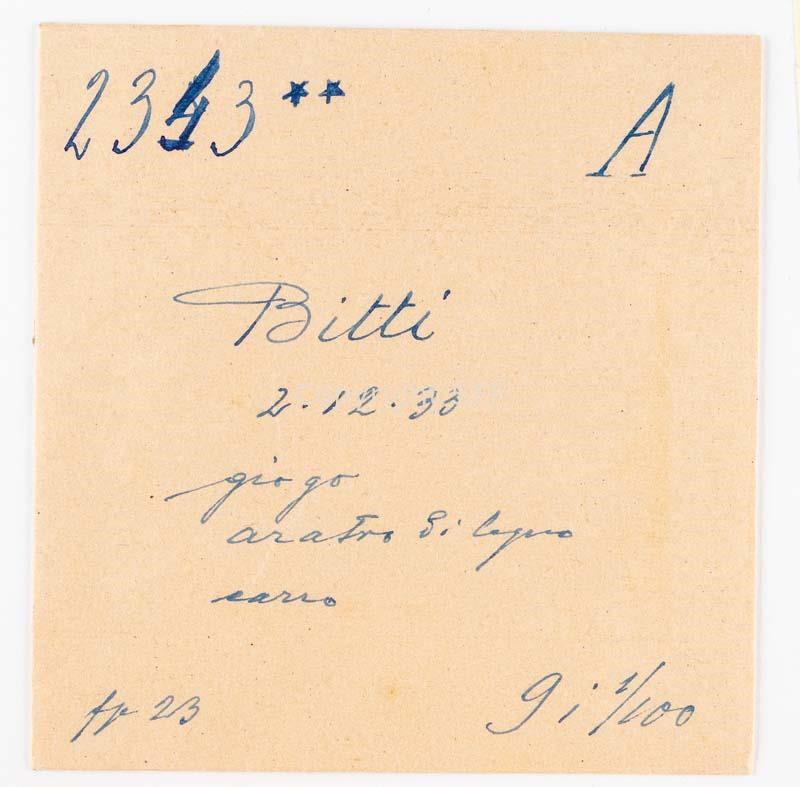 2343 **
A
Bitti
2.12.33
giogo
aratro di legno
carro
fp 23
9 i 1/100